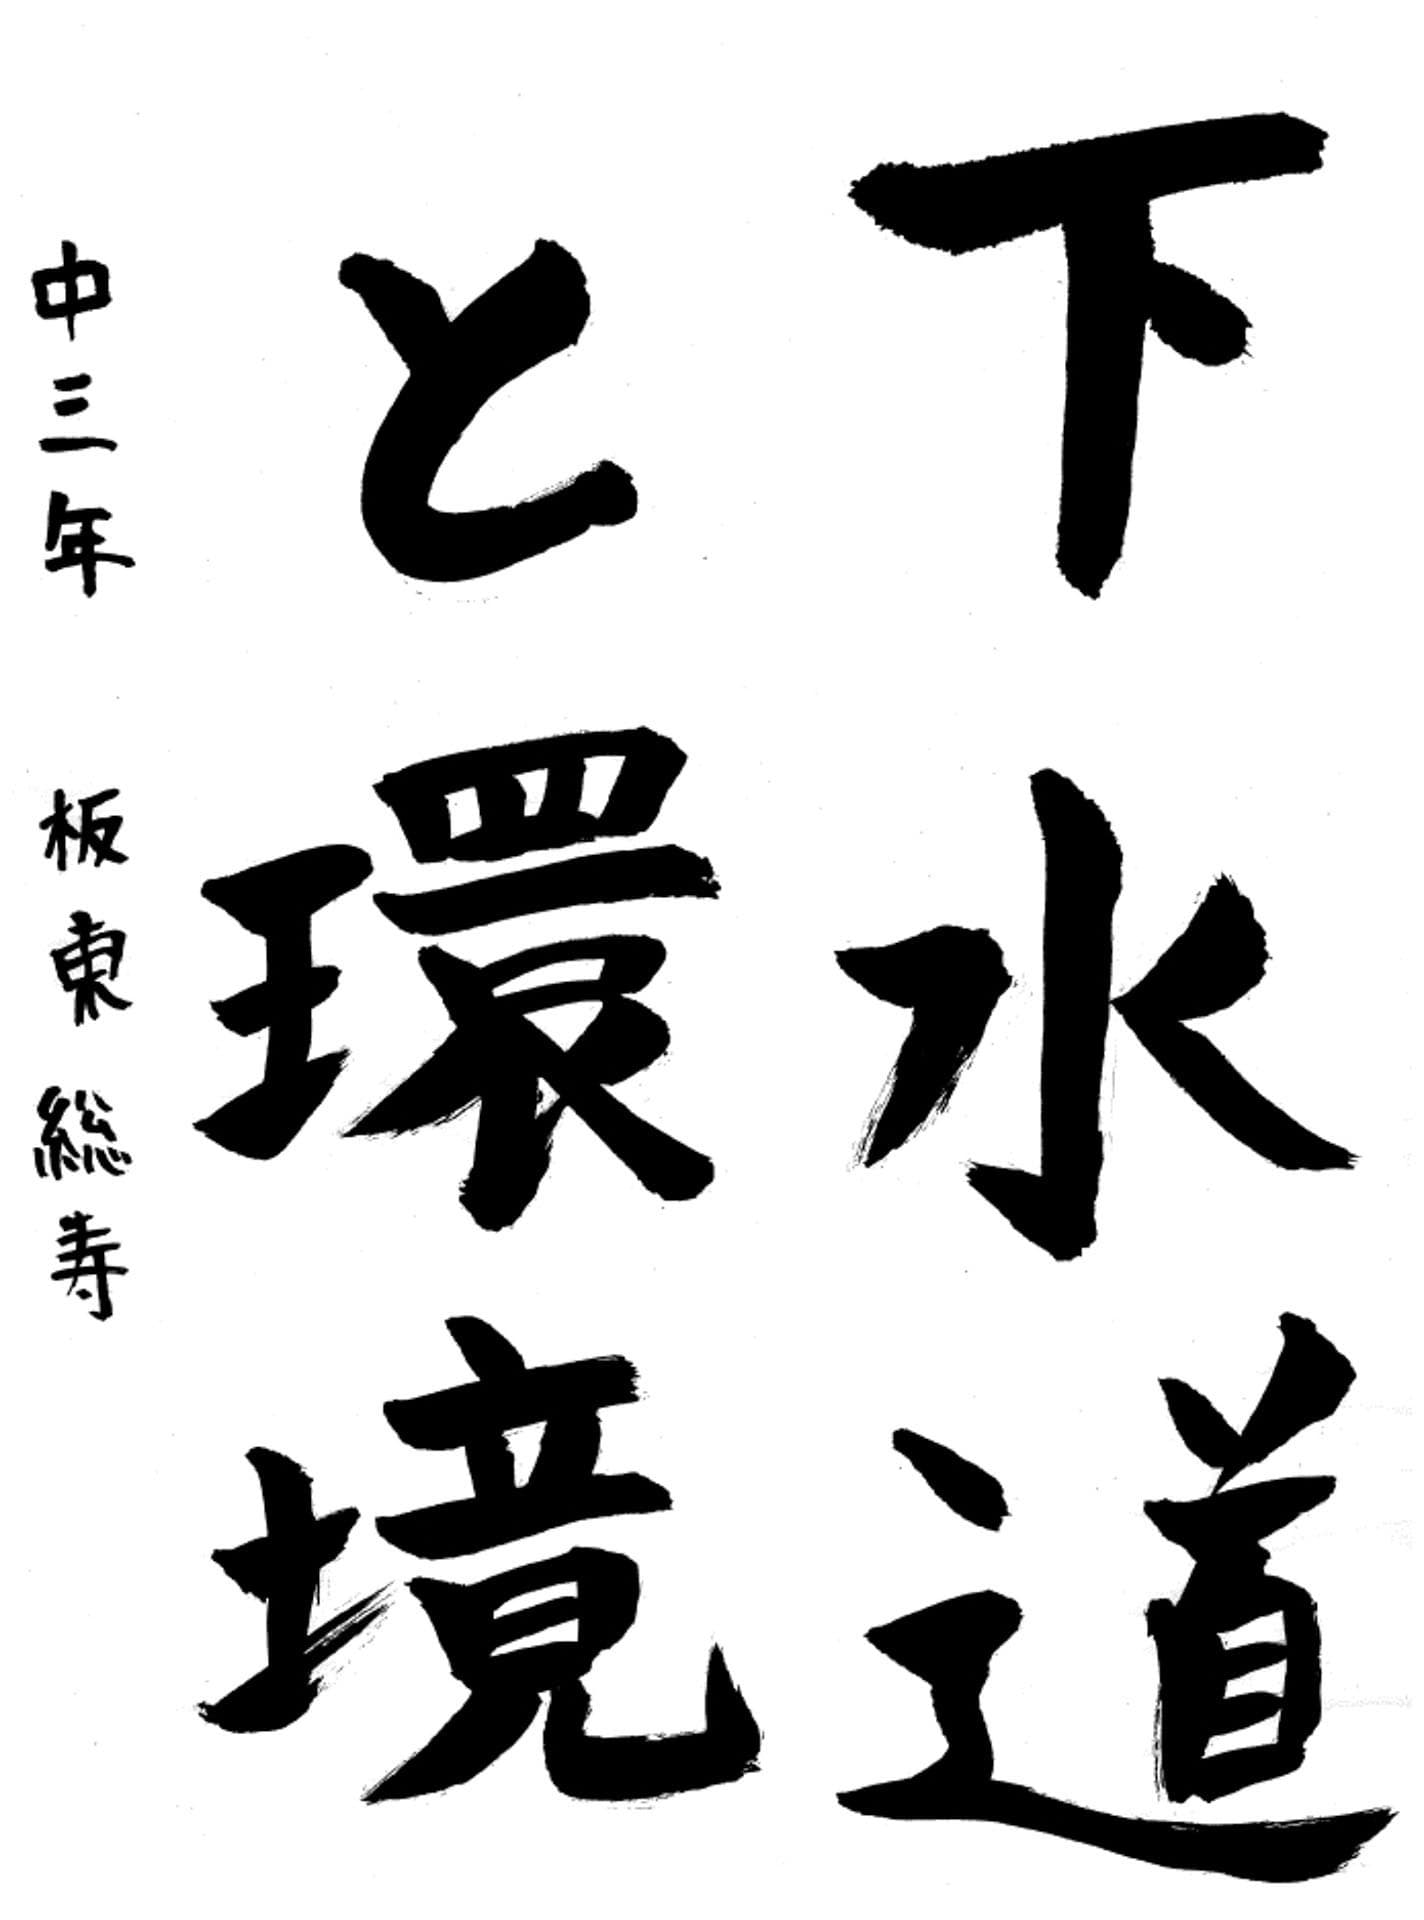 下水道
と環境
中三年 板東総寿